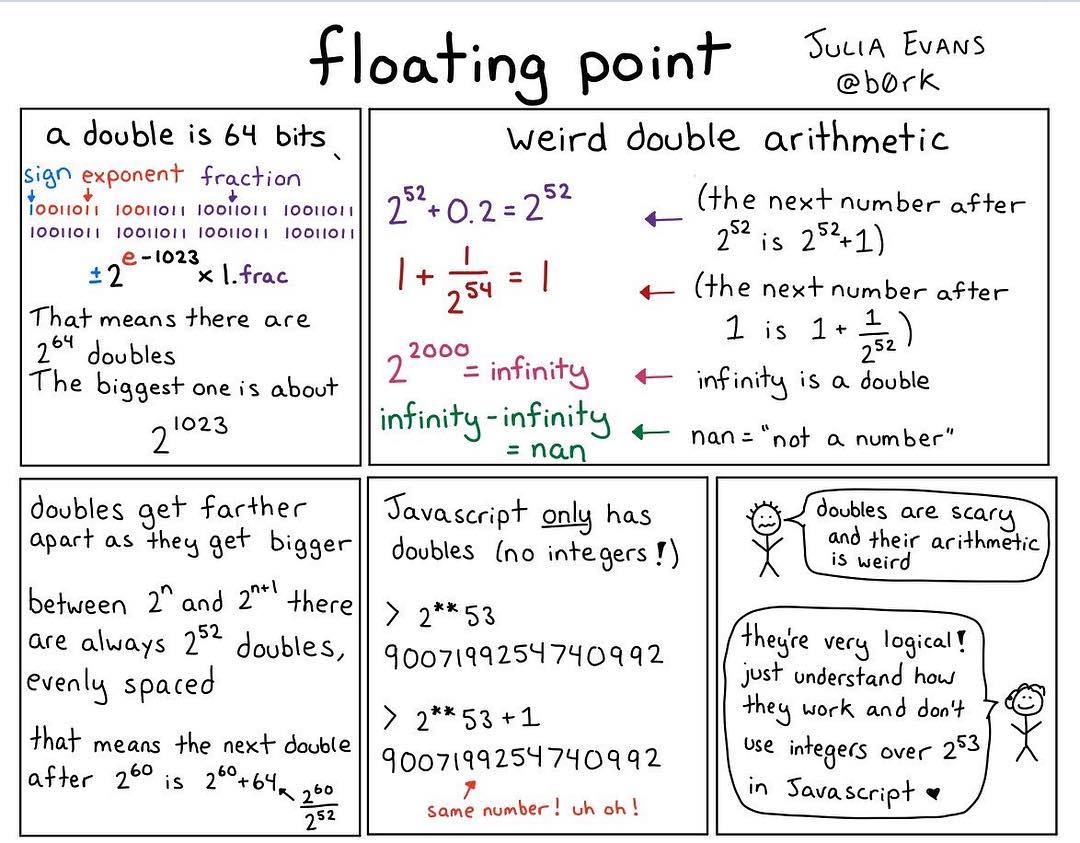 floating point
JULIA EVANS
@b0rk
a double is 64 bits
sign exponent fraction
10011011 10011011 10011011 10011011
10011011 10011011 10011011 10011011
±2^(e-1023) × 1.frac
That means there are
2^64 doubles
The biggest one is about
2^1023
weird double arithmetic
2^52 + 0.2 = 2^52
(the next number after
2^52 is 2^52+1)
1 + 1/2^54 = 1
(the next number after
1 is 1 + 1/2^52)
2^2000 = infinity
infinity is a double
infinity - infinity
= nan
nan = "not a number"
doubles get farther
apart as they get bigger
between 2^n and 2^(n+1) there
are always 2^52 doubles,
evenly spaced
that means the next double
after 2^60 is 2^60+64
2^60/2^52
Javascript only has
doubles (no integers!)
> 2**53
9007199254740992
> 2**53+1
9007199254740992
same number! uh oh!
doubles are scary
and their arithmetic
is weird
they're very logical!
just understand how
they work and don't
use integers over 2^53
in Javascript ♥